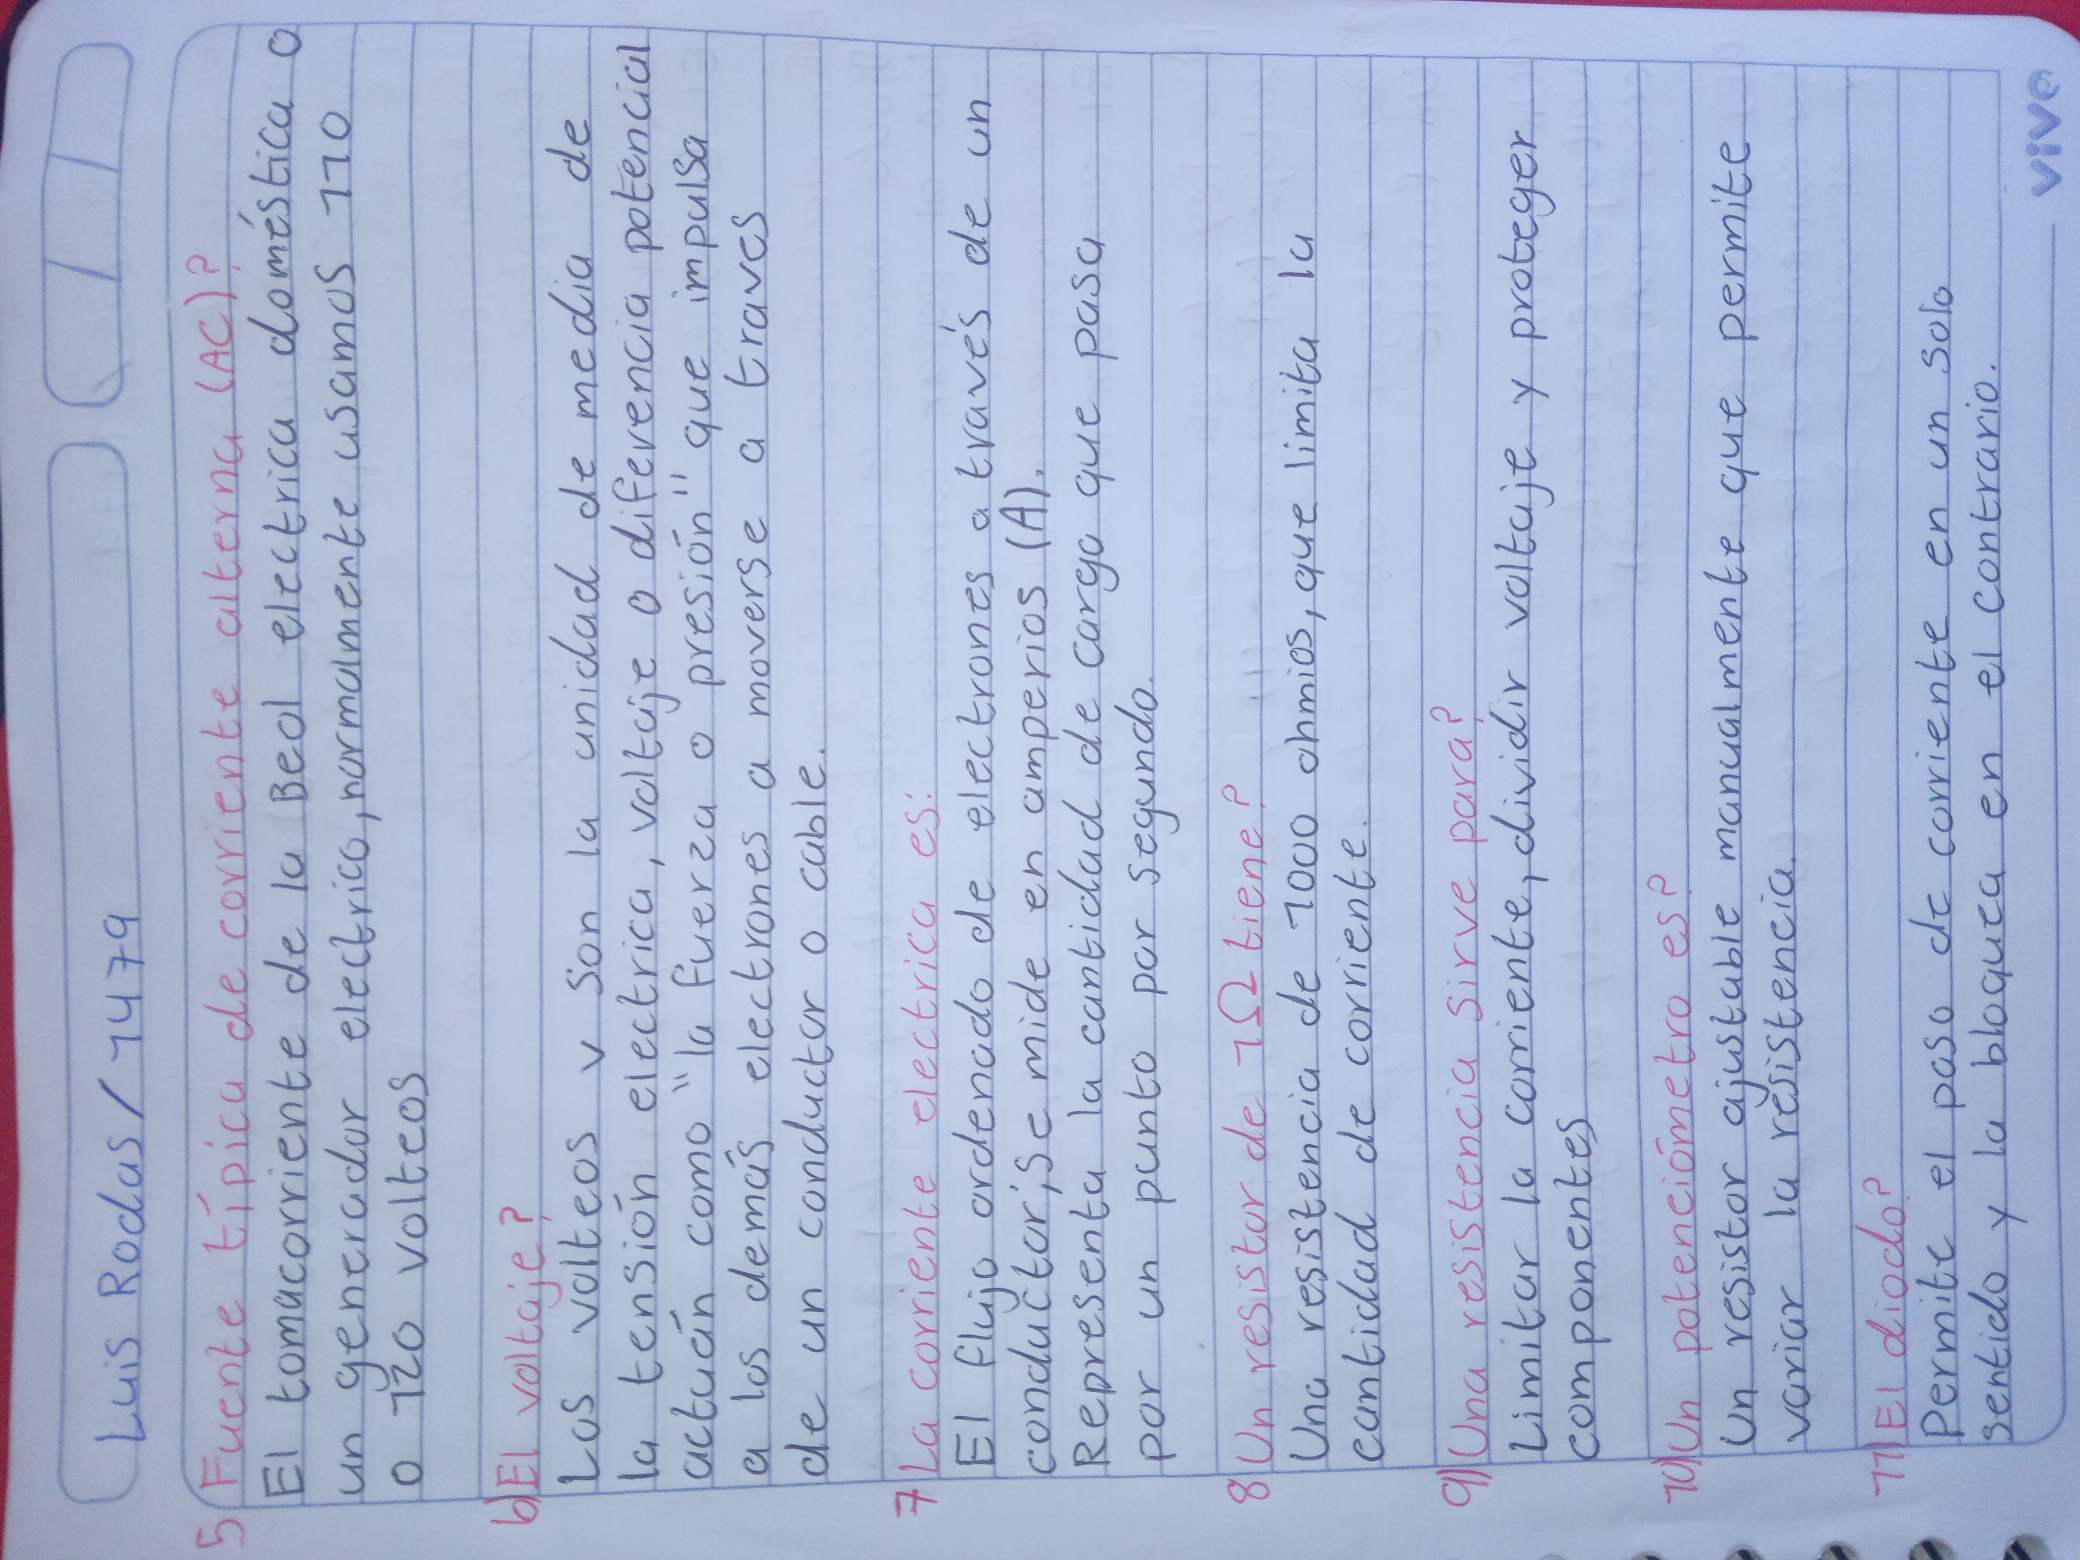 Luis Rodas / 1479
5 Fuente típica de corriente alterna (AC)?
El tomacorriente de la Beol electrica doméstica o
un generador electrico, normalmente usamos 110
o 120 volteos
6) El voltaje?
Los volteos v son la unidad de media de
la tensión electrica, voltaje o diferencia potencial
actuán como "la fuerza o presión" que impulsa
a los demás electrones a moverse a traves
de un conductor o cable.
7 La coriente electrica es:
El flujo ordenado de electrones a través de un
conductor; se mide en amperios (A).
Representa la cantidad de carga que pasa
por un punto por segundo.
8 Un resistor de 1Ω tiene?
Una resistencia de 1000 ohmios, que limita la
cantidad de corriente.
9) Una resistencia sirve para?
Limitar la corriente, dividir voltaje y proteger
componentes
10) Un potenciómetro es?
Un resistor ajustable manualmente que permite
variar la resistencia.
11) El diodo?
Permite el paso de coriente en un solo
sentido y la bloquea en el contrario.
vive